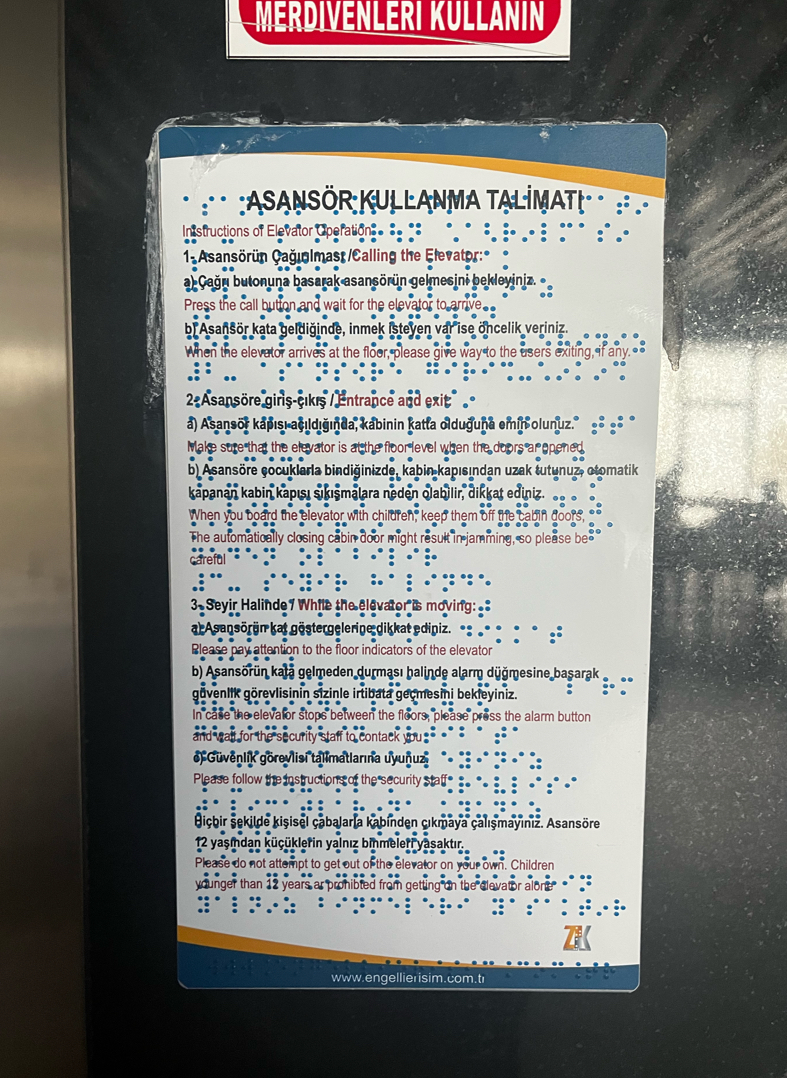 MERDİVENLERİ KULLANIN
ASANSÖR KULLANMA TALİMATI
Instructions of Elevator Operation:
1- Asansörün Çağrılması /Calling the Elevator:
a) Çağrı butonuna basarak asansörün gelmesini bekleyiniz.
Press the call button and wait for the elevator to arrive.
b) Asansör kata geldiğinde, inmek isteyen var ise öncelik veriniz.
When the elevator arrives at the floor, please give way to the users exiting, if any.
2- Asansöre giriş-çıkış / Entrance and exit:
a) Asansör kapısı açıldığında, kabinin katta olduğuna emin olunuz.
Make sure that the elevator is at the floor level when the doors ar opened.
b) Asansöre çocuklarla bindiğinizde, kabin kapısından uzak tutunuz, otomatik
kapanan kabin kapısı sıkışmalara neden olabilir, dikkat ediniz.
When you board the elevator with children, keep them off the cabin doors,
The automatically closing cabin door might result in jamming, so please be
careful
3- Seyir Halinde / While the elevator is moving:
a) Asansörün kat göstergelerine dikkat ediniz.
Please pay attention to the floor indicators of the elevator
b) Asansörün kata gelmeden durması halinde alarm düğmesine basarak
güvenlik görevlisinin sizinle irtibata geçmesini bekleyiniz.
In case the elevator stops between the floors, please press the alarm button
and wait for the security staff to contack you
c) Güvenlik görevlisi talimatlarına uyunuz.
Please follow the instructions of the security staff
Hiçbir şekilde kişisel çabalarla kabinden çıkmaya çalışmayınız. Asansöre
12 yaşından küçüklerin yalnız binmeleri yasaktır.
Please do not attempt to get out of the elevator on your own. Children
younger than 12 years ar prohibted from getting on the elevator alone
www.engellierisim.com.tr